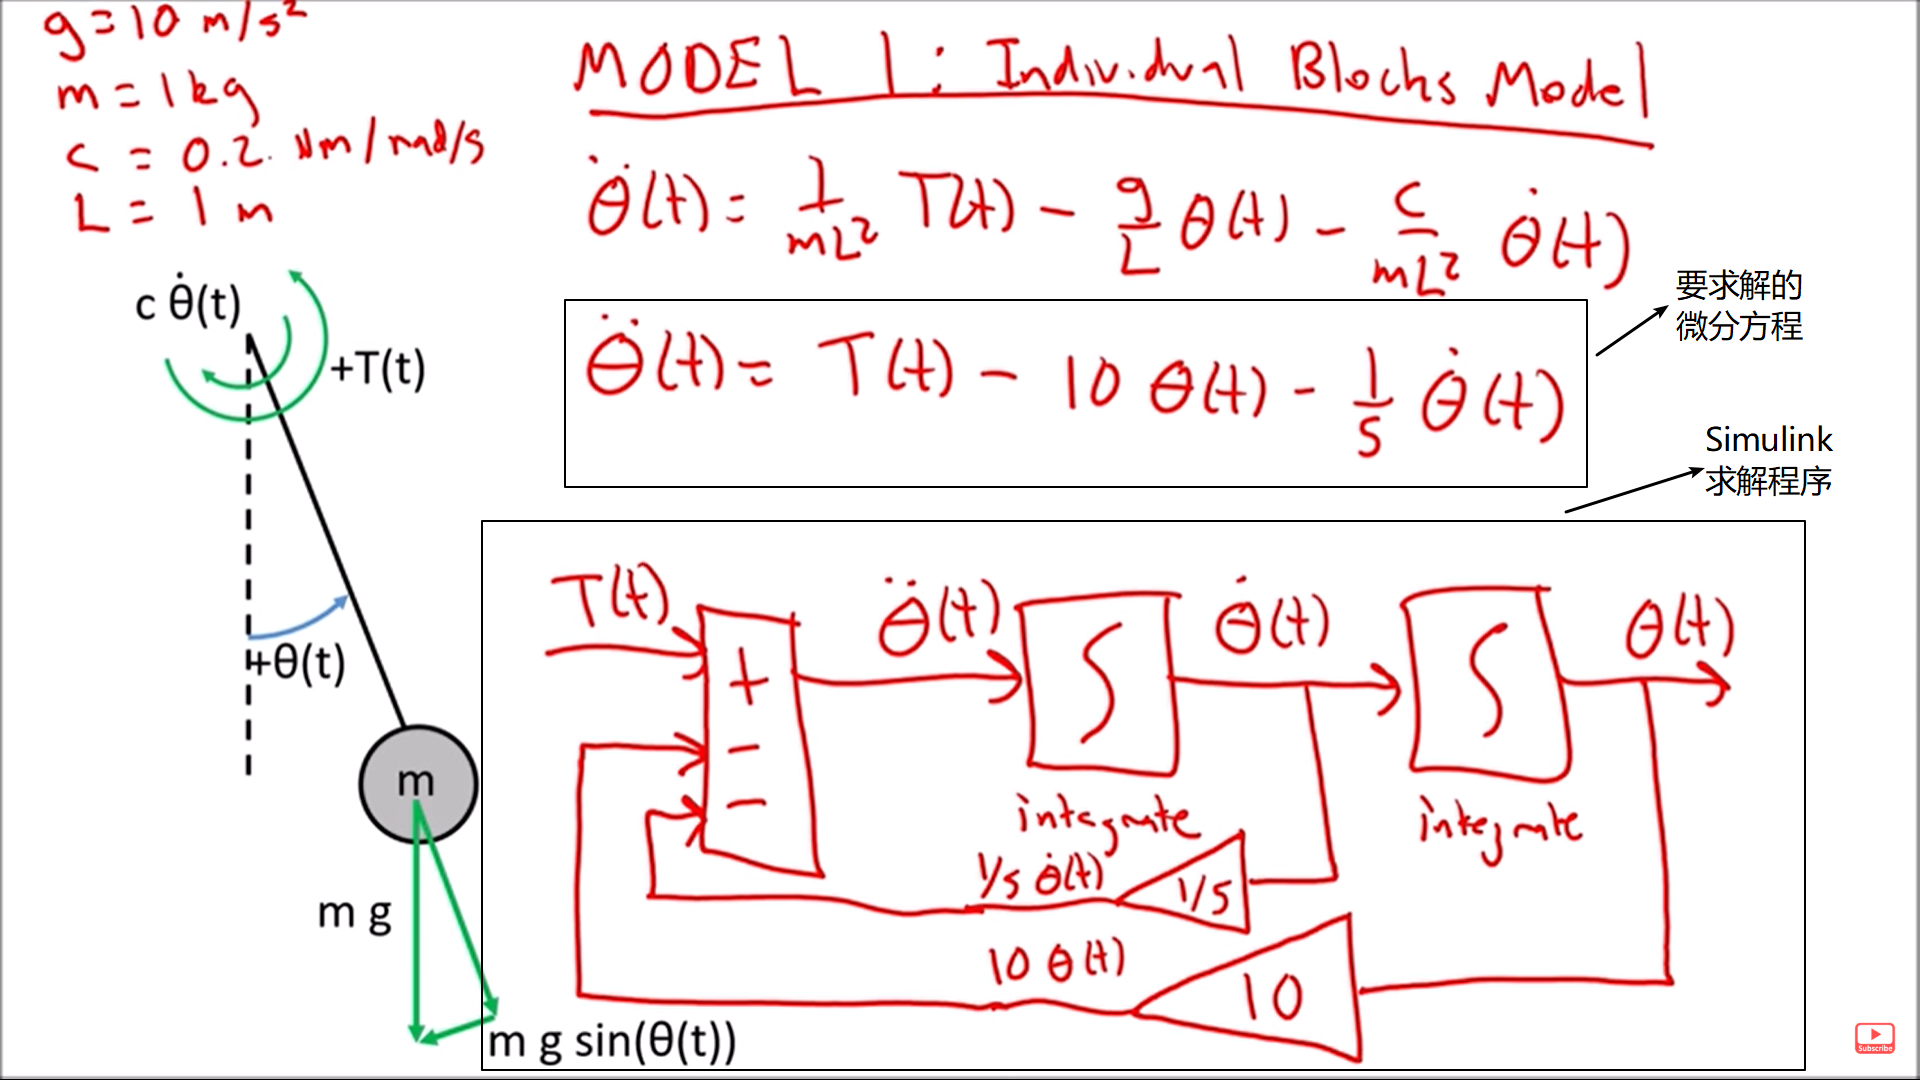 g = 10 m/s²
m = 1 kg
c = 0.2 Nm/rad/s
L = 1 m
MODEL 1: Individual Blocks Model
θ̈(t) = 1/mL² T(t) - g/L θ(t) - c/mL² θ̇(t)
θ̈(t) = T(t) - 10 θ(t) - 1/5 θ̇(t)
要求解的
微分方程
Simulink
求解程序
c θ̇(t)
+T(t)
+θ(t)
m
m g
m g sin(θ(t))
T(t)
+
-
-
θ̈(t)
∫
integrate
θ̇(t)
∫
integrate
θ(t)
1/5 θ̇(t)
1/5
10 θ(t)
10
Subscribe